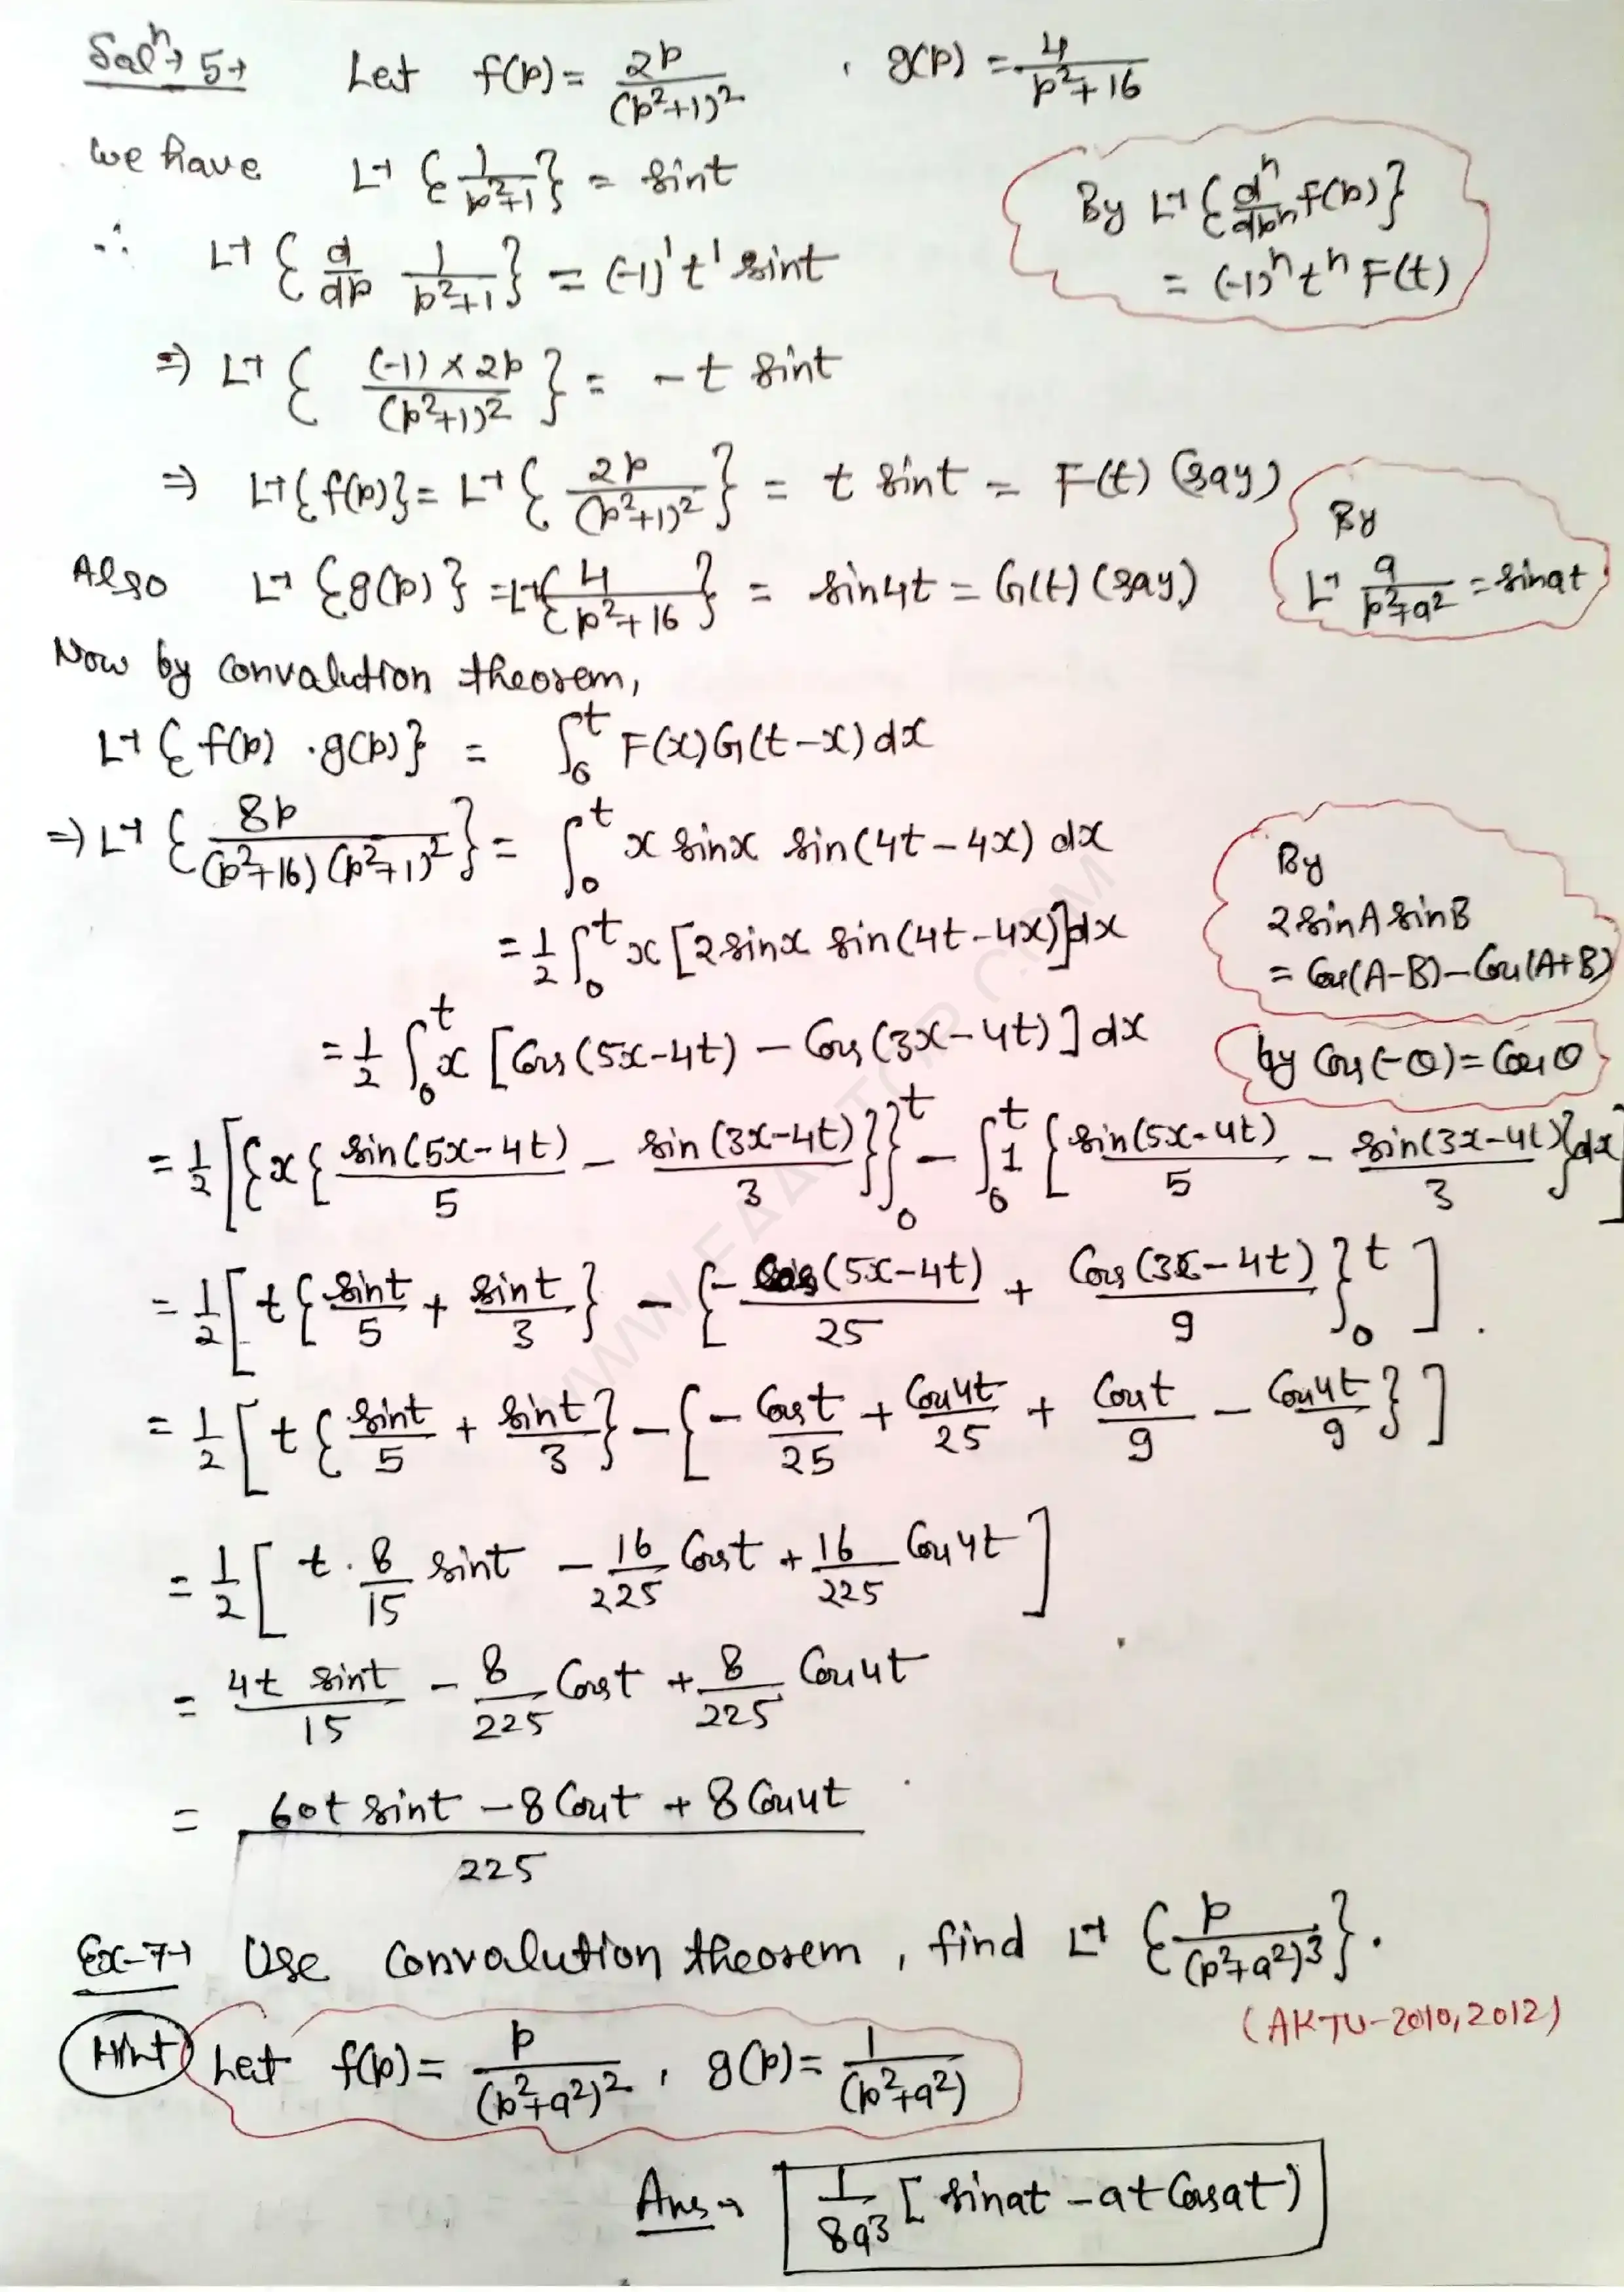 Solⁿ→ 5→ Let f(p) = 2p/(p²+1)² , g(p) = 4/(p²+16)
We have L⁻¹ {1/(p²+1)} = sint
By L⁻¹ {dⁿ/dpⁿ f(p)}
= (-1)ⁿ tⁿ F(t)
∴ L⁻¹ {d/dp 1/(p²+1)} = (-1)¹ t¹ sint
⇒ L⁻¹ {(-1) × 2p/(p²+1)²} = - t sint
⇒ L⁻¹{f(p)} = L⁻¹ {2p/(p²+1)²} = t sint = F(t) (say)
By
L⁻¹ a/(p²+a²) = sinat
Also L⁻¹ {g(p)} = L⁻¹{4/(p²+16)} = sin4t = G(t) (say)
Now by convalution theorem,
L⁻¹ {f(p) . g(p)} = ∫₀ᵗ F(x) G(t-x) dx
⇒ L⁻¹ {8p/(p²+16)(p²+1)²} = ∫₀ᵗ x sinx sin(4t-4x) dx
By
2 sinA sinB
= Cos(A-B) - Cos(A+B)
= 1/2 ∫₀ᵗ x [2 sinx sin(4t-4x)] dx
= 1/2 ∫₀ᵗ x [Cos(5x-4t) - Cos(3x-4t)] dx
by Cos(-θ) = Cosθ
= 1/2 [{x {sin(5x-4t)/5 - sin(3x-4t)/3}}₀ᵗ - ∫₀ᵗ 1 {sin(5x-4t)/5 - sin(3x-4t)/3} dx]
= 1/2 [t {sint/5 + sint/3} - {-Cos(5x-4t)/25 + Cos(3x-4t)/9}₀ᵗ] .
= 1/2 [t {sint/5 + sint/3} - {-Cost/25 + Cos4t/25 + Cost/9 - Cos4t/9}]
= 1/2 [t . 8/15 sint - 16/225 Cost + 16/225 Cos4t]
= 4t sint/15 - 8/225 Cost + 8/225 Cos4t
= 60t sint - 8 Cost + 8 Cos4t / 225
Ex-7→ Use Convalution theorem, find L⁻¹ {p/(p²+a²)³}.
(AKTU-2010, 2012)
Hint Let f(p) = p/(p²+a²)² , g(p) = 1/(p²+a²)
Ans→ 1/8a³ [sinat - at Cosat)
WWW.FAADTOP.COM